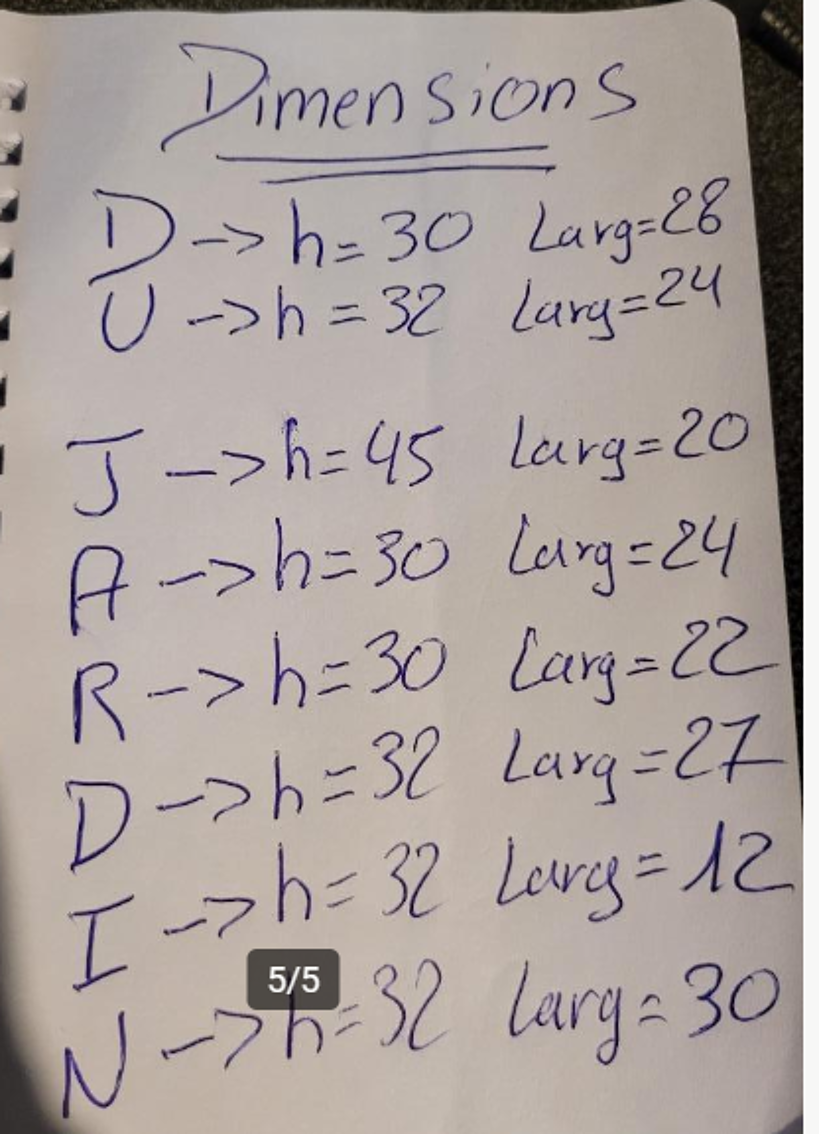 Dimensions
D -> h = 30 Larg=28
U -> h = 32 Larg=24
J -> h= 45 Larg=20
A -> h= 30 Larg=24
R -> h= 30 Larg=22
D -> h= 32 Larg=27
I -> h= 32 Larg= 12
5/5
N -> h= 32 Larg= 30